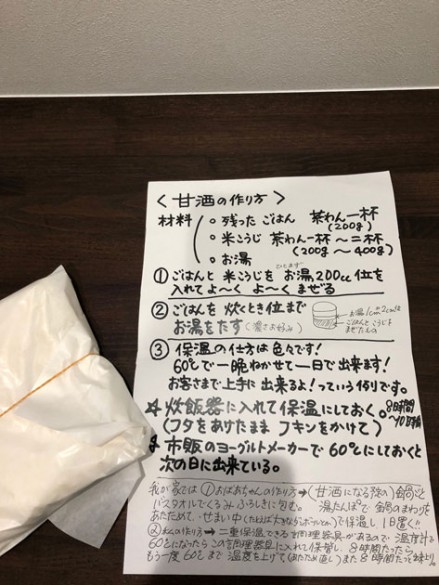 〈甘酒の作り方〉
材料
○ 残った ごはん 茶わん一杯
(200g)
○ 米こうじ 茶わん一杯〜二杯
(200g〜400g)
○ お湯
① ごはんと 米こうじを お湯200cc位を
入れて よ〜く よ〜く まぜる
② ごはんを 炊くとき位まで
お湯をたす
③ 保温の仕方は色々です!
60℃で一晩ねかせて一日で出来ます!
お客さまで上手に出来るよ!っていう作りです。
☆ 炊飯器に入れて保温にしておく。8時間
〜10時間
(フタをあけたまま フキンをかけて)
☆ 市販のヨーグルトメーカーで60℃にしておくと
次の日に出来ている。
我が家では ①おばあちゃんの作り方→(甘酒になる
バスタオルでくるみふろしきに包む。湯たんぽで
あたためて、せまい中 で保温し1日置く!!
②私の作り方→二重保温できる調理器具があるので 温度計で
60℃になったらこの調理器具に入れて保管し 8時間たったら
もう一度60℃まで温度を上げて(あたため直し)また8時間